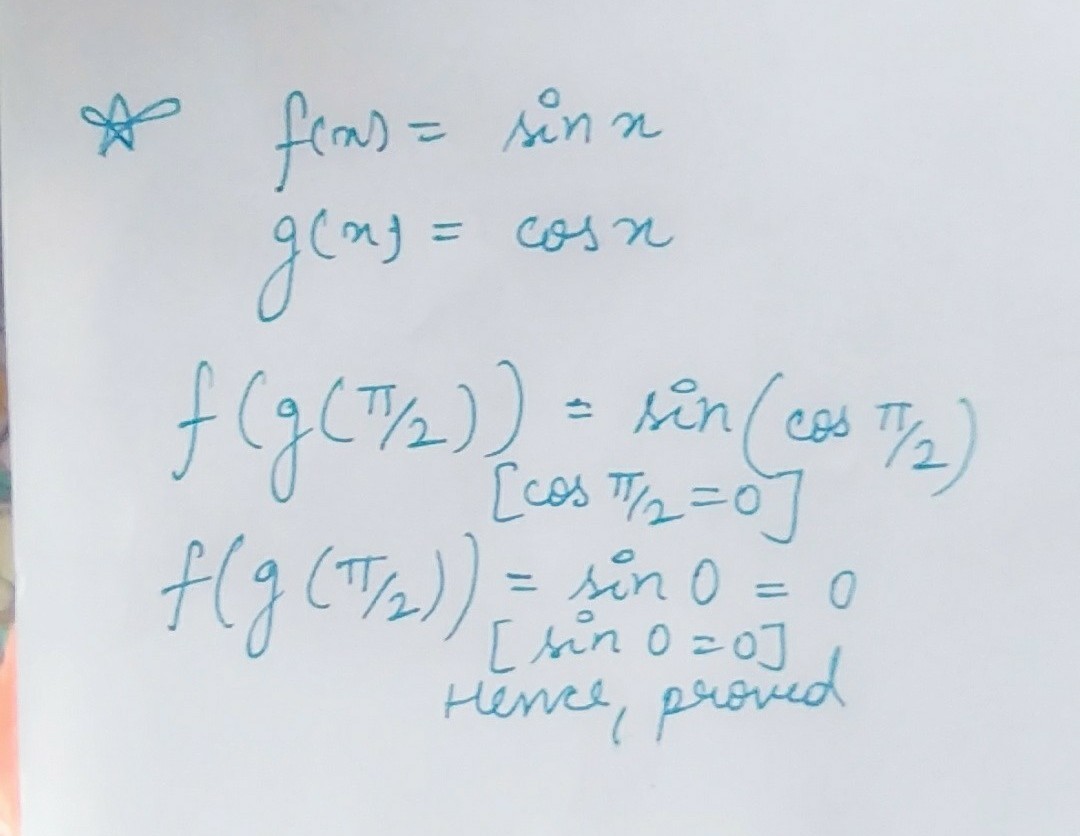 f(x) = sin x
g(x) = cos x
f(g(π/2)) = sin(cos π/2)
[cos π/2 = 0]
f(g(π/2)) = sin 0 = 0
[sin 0 = 0]
Hence, proved